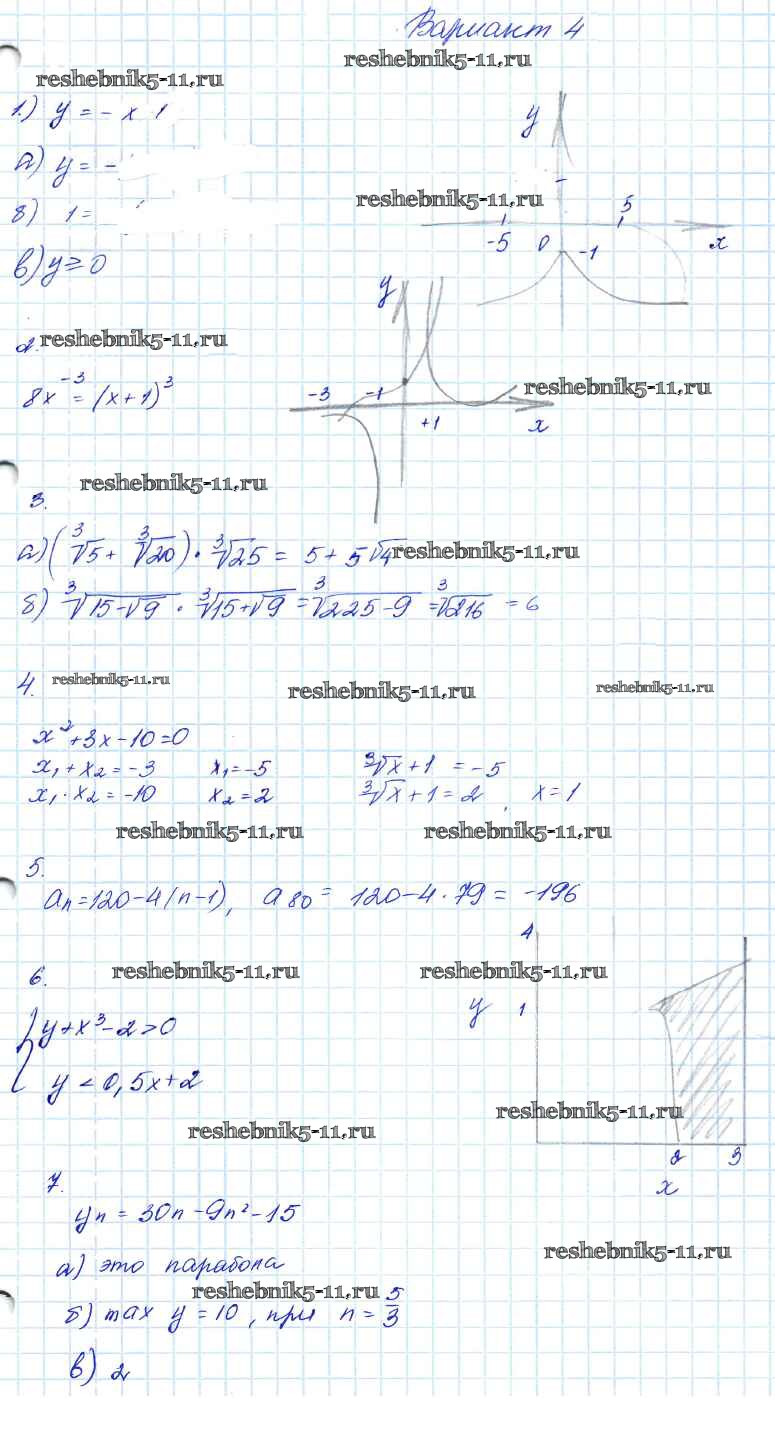 Вариант 4
reshebnik5-11.ru
reshebnik5-11.ru
1.) y = - x 1
y
а) y = -
reshebnik5-11.ru
5
б) 1 =
-5 0 -1 x
в) y ≥ 0
y
2. reshebnik5-11.ru
8x⁻³ = (x+1)³
-3 -1 reshebnik5-11.ru
+1 x
reshebnik5-11.ru
3.
а) (∛5 + ∛20) · ∛25 = 5 + 5√4 reshebnik5-11.ru
б) ∛(15-√9) · ∛(15+√9) = ∛(225-9) = ∛216 = 6
4. reshebnik5-11.ru reshebnik5-11.ru reshebnik5-11.ru
x²+3x-10=0
x₁+x₂=-3 x₁=-5 ∛x+1 = -5
x₁·x₂=-10 x₂=2 ∛x+1=2, x=1
reshebnik5-11.ru reshebnik5-11.ru
5.
aₙ=120-4(n-1), a₈₀= 120-4·79= -196
4
6. reshebnik5-11.ru reshebnik5-11.ru
y 1
{ y+x³-2>0
y < 0,5x+2
reshebnik5-11.ru
reshebnik5-11.ru
2 3
x
7.
yn = 30n-9n²-15
reshebnik5-11.ru
а) это парабола
reshebnik5-11.ru
б) max y = 10, при n = 5/3
в) 2